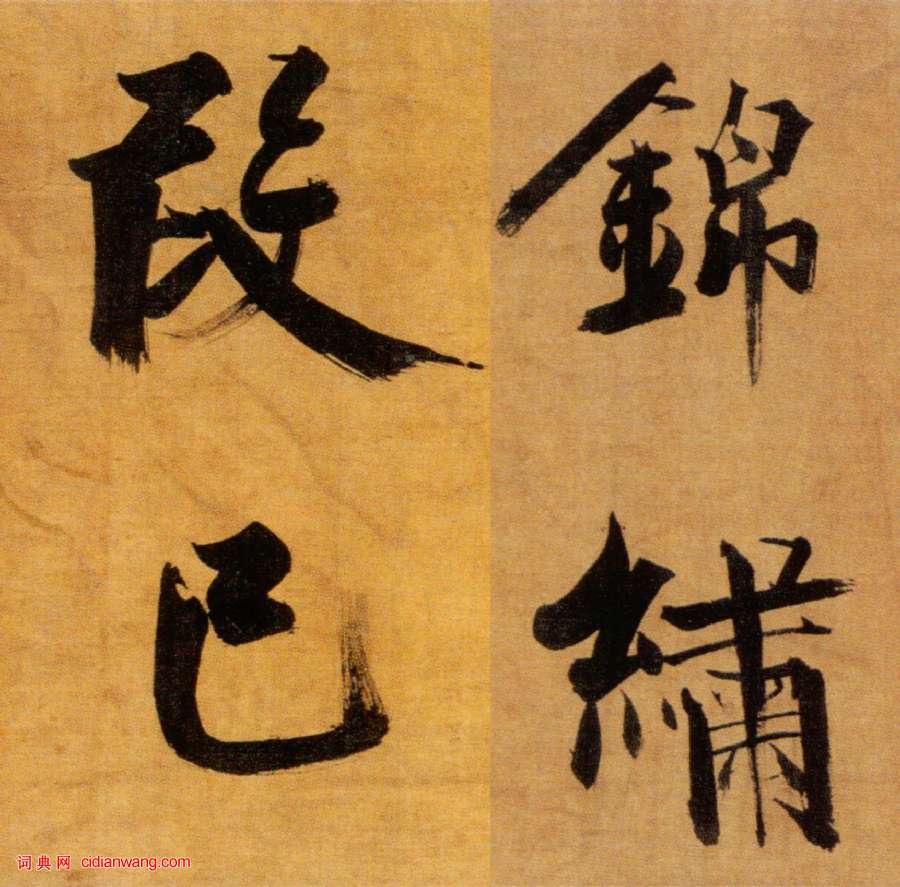 錦繡
段已
词典网 cidianwang.com